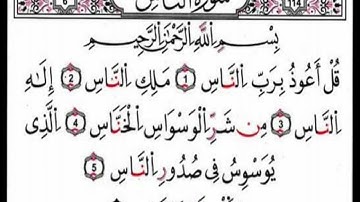 6 سُورَةُ النَّاسِ 114
بِسْمِ اللَّهِ الرَّحْمَٰنِ الرَّحِيمِ
قُلْ أَعُوذُ بِرَبِّ النَّاسِ 1 مَلِكِ النَّاسِ 2 إِلَٰهِ
النَّاسِ 3 مِن شَرِّ الْوَسْوَاسِ الْخَنَّاسِ 4 الَّذِى
يُوَسْوِسُ فِى صُدُورِ النَّاسِ 5